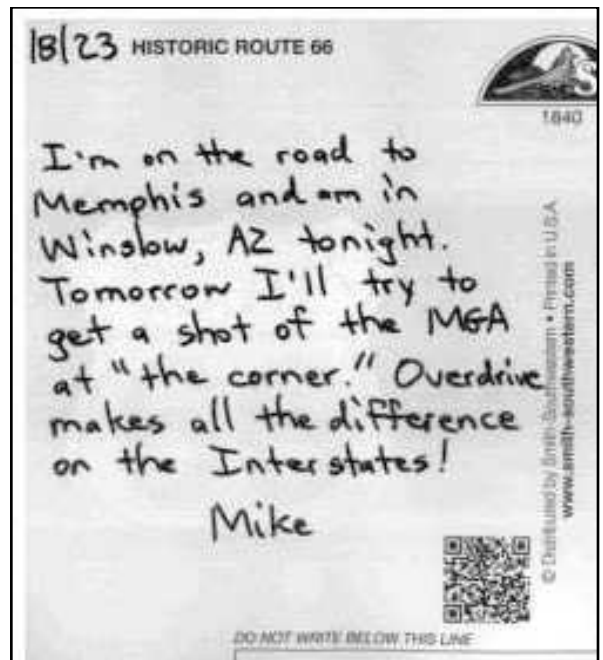 18/23 HISTORIC ROUTE 66
S
1840
I'm on the road to
Memphis and am in
Winslow, AZ tonight.
Tomorrow I'll try to
get a shot of the MGA
at "the corner." Overdrive
makes all the difference
on the Interstates!
Mike
© Distributed by Smith-Southwestern • Printed in U.S.A
www.smith-southwestern.com
DO NOT WRITE BELOW THIS LINE